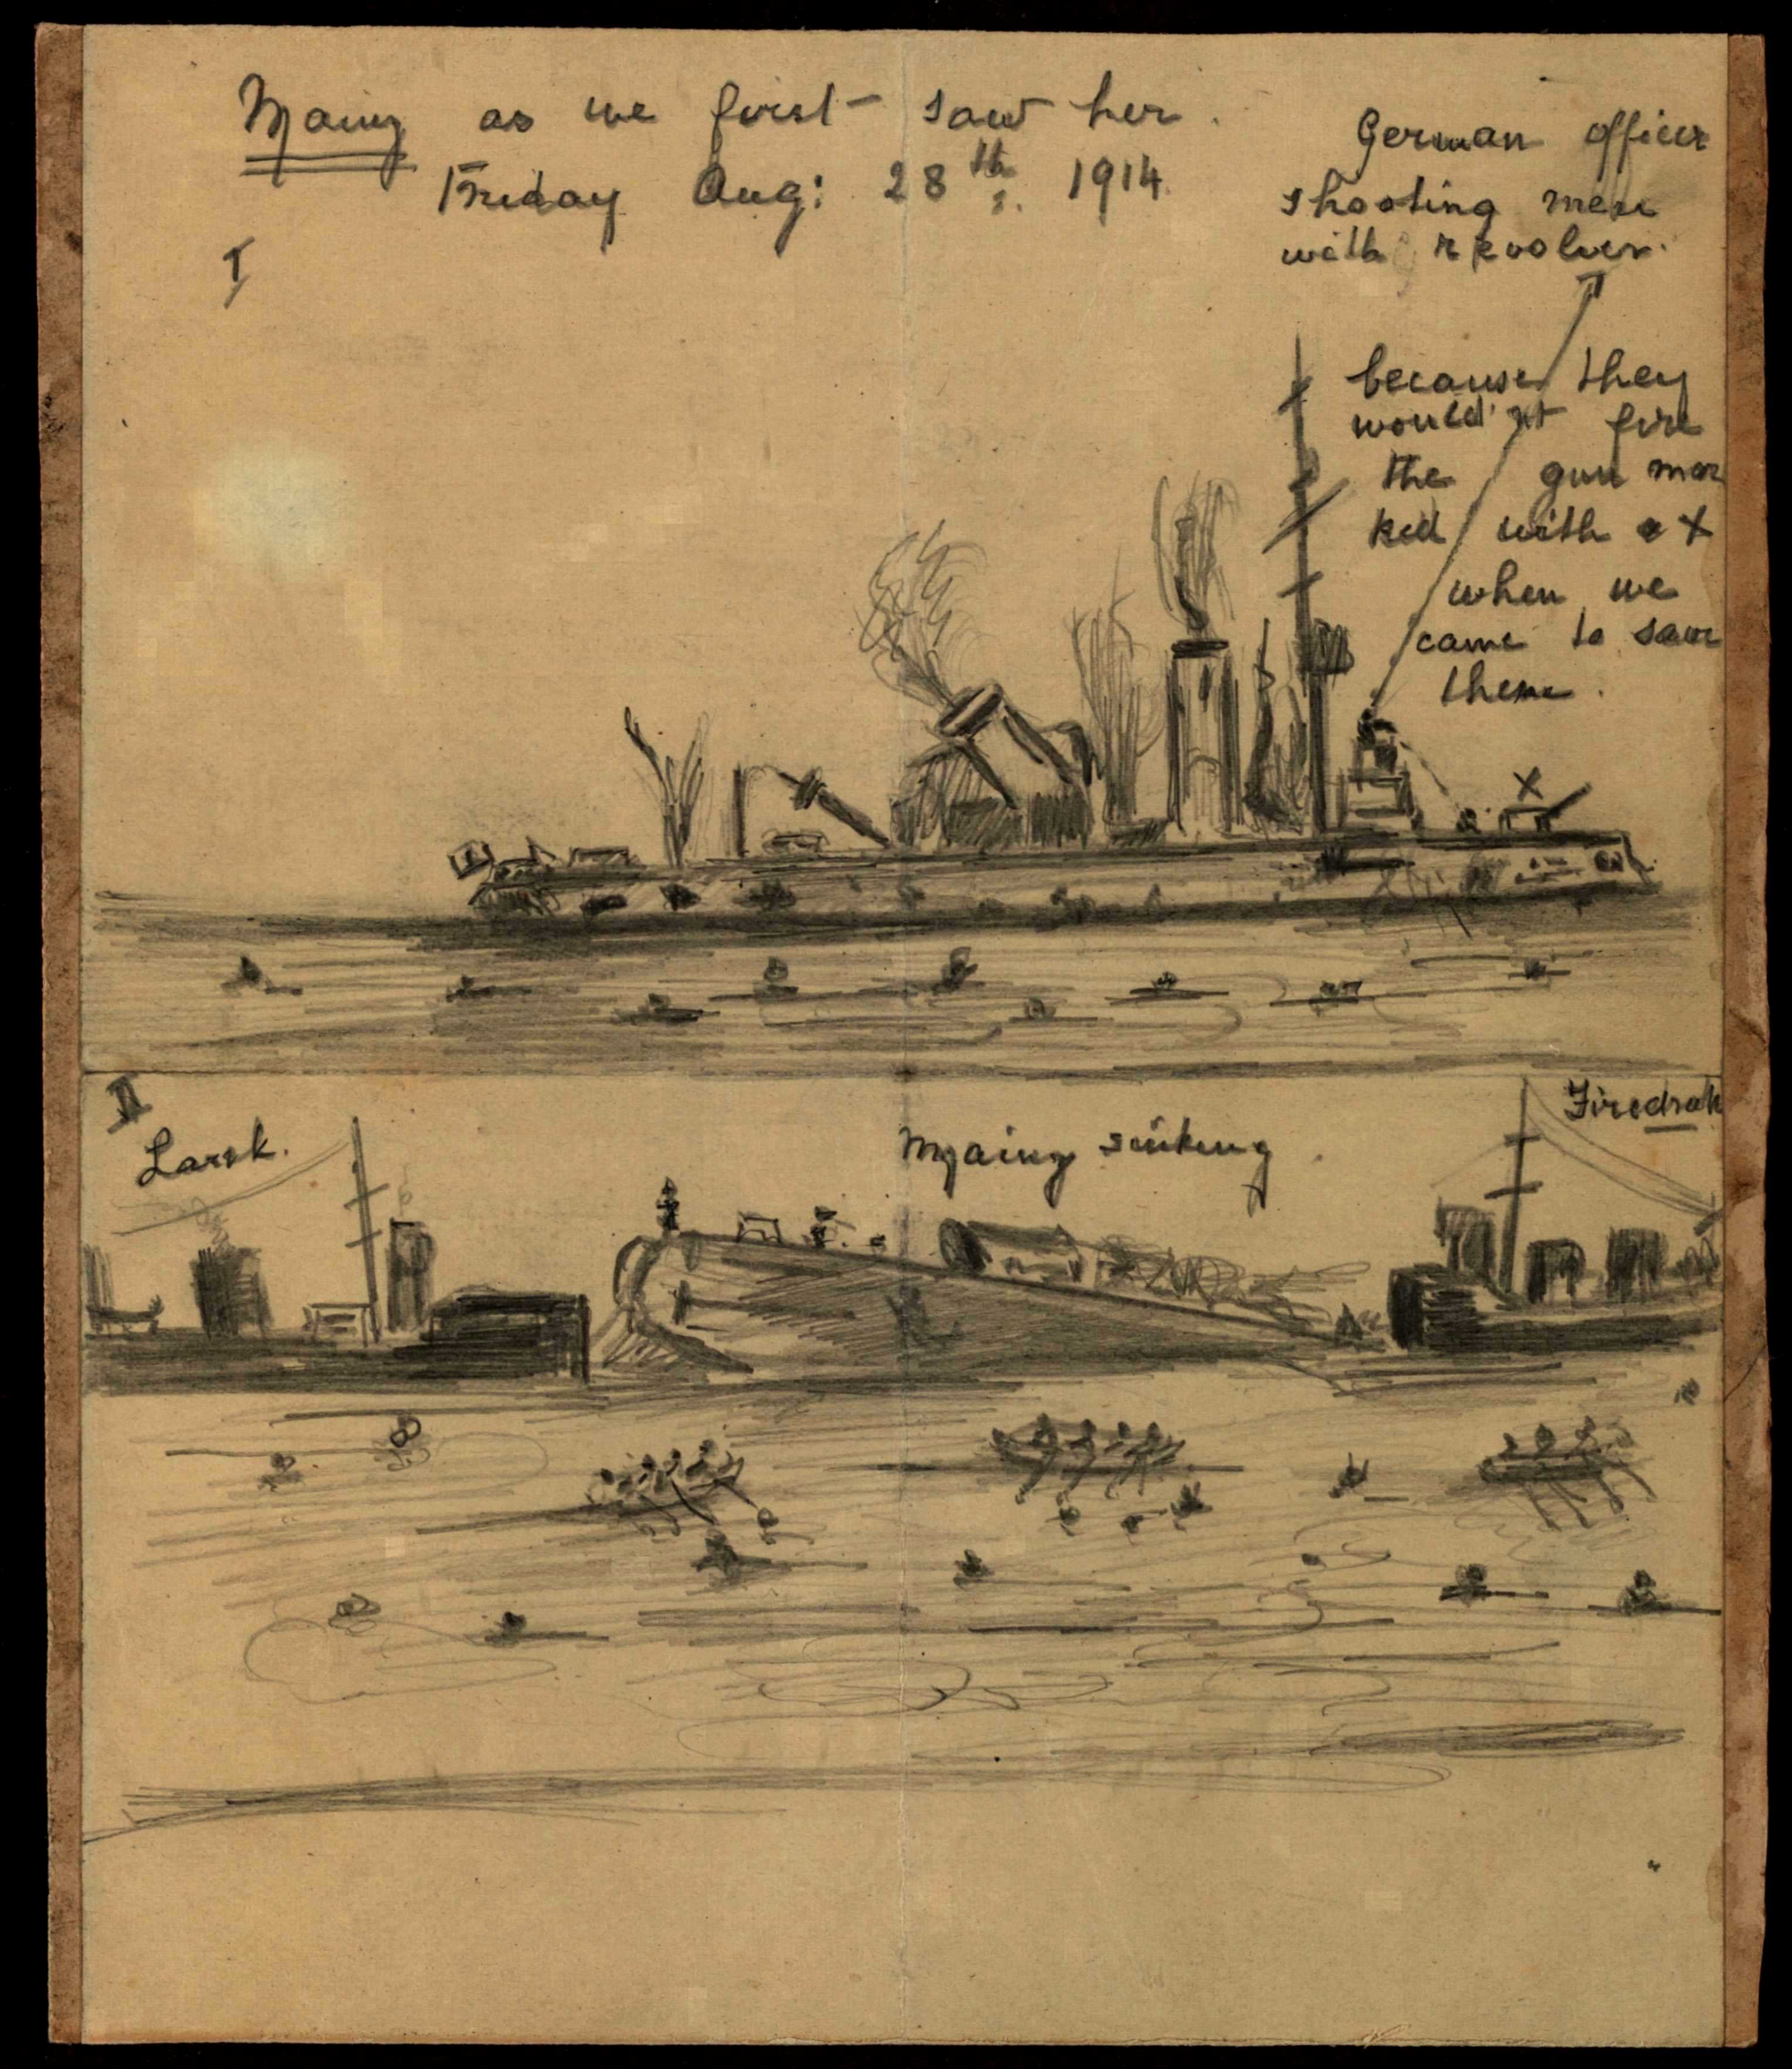 Mainz as we first saw her.
Friday Aug: 28th. 1914
I
German officer
shooting men
with revolver.
because they
would'nt fire
the gun mar
ked with a X
when we
came to save
them.
X
II
Lark.
Mainz sinking.
Firedrak